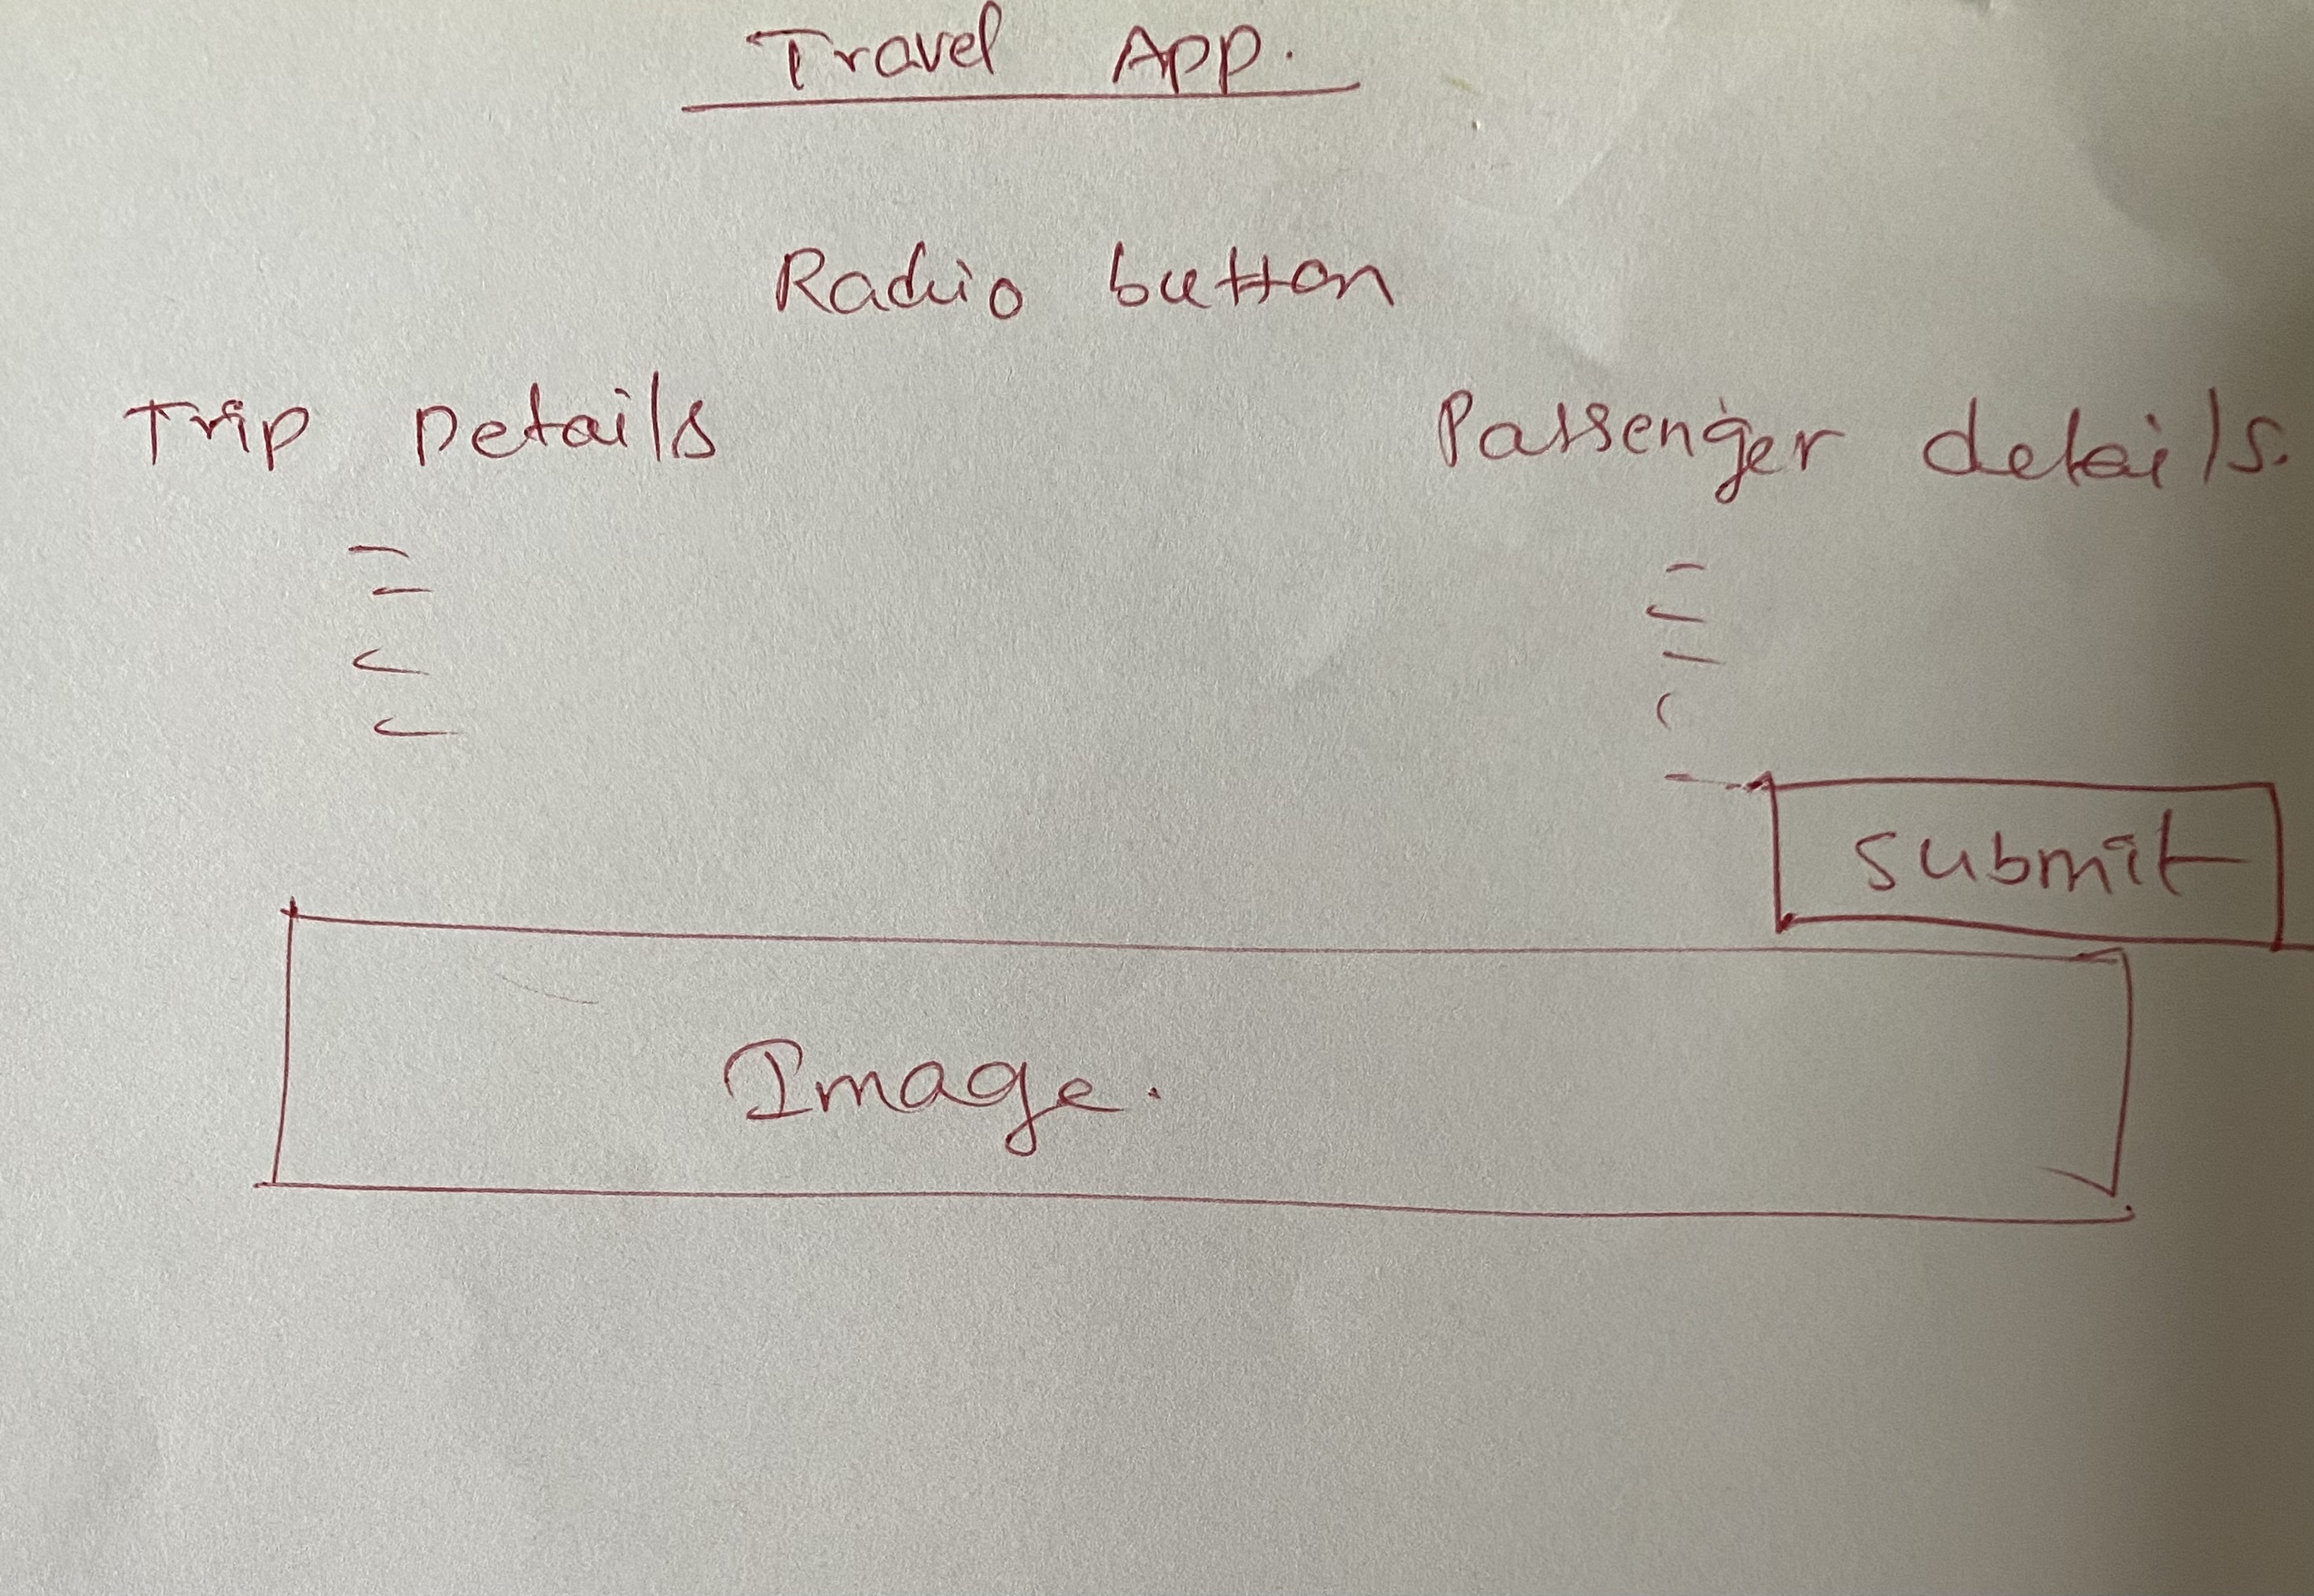 Travel App.
Radio button
Trip Details
Passenger details.
submit
Image.